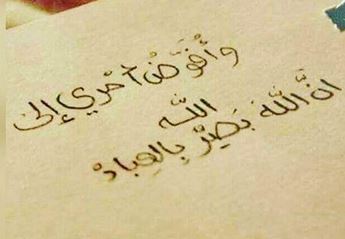 وأفوّضُ أمْري إلىٰ
اللّٰه
انَّ اللَّهَ بَصِيْرٌ بالعِبادْ